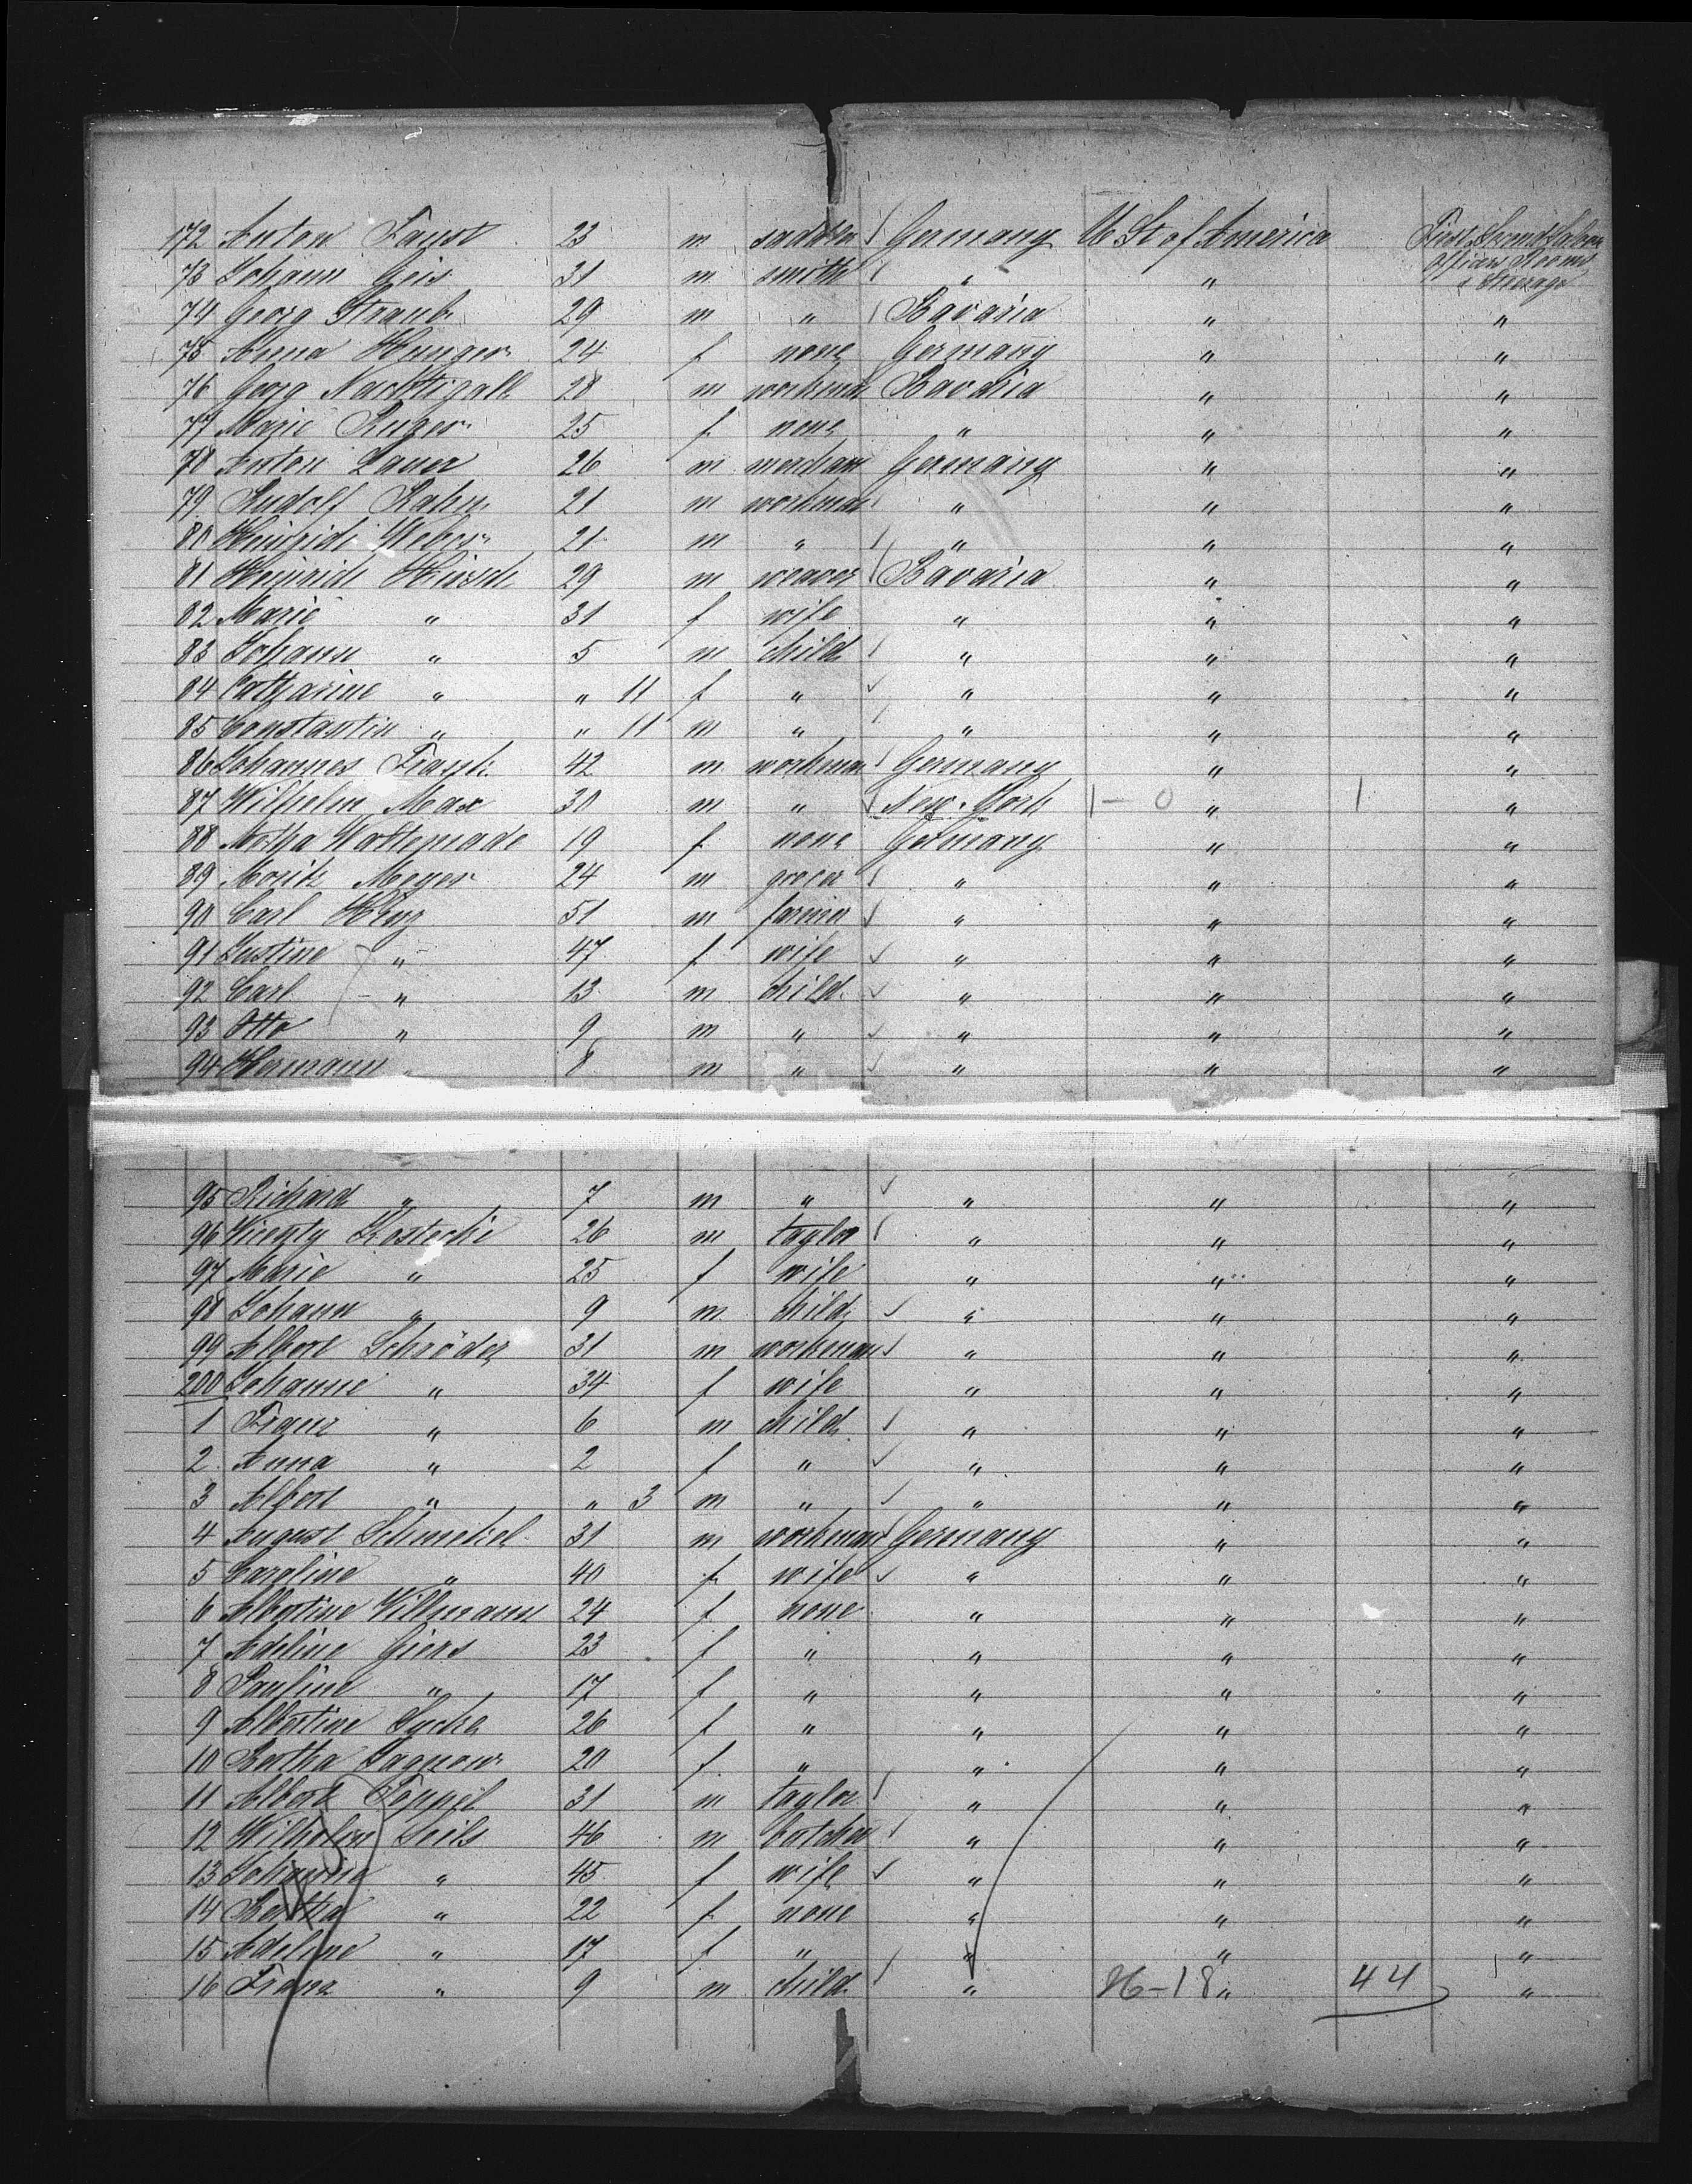 172 Anton Faust 23 m saddler Germany U St of America First, Second Saloon
Officers Rooms
& Steerage
73 Johann Geis 31 m smith " "
74 Georg Straub 29 m " Bavaria " "
75 Anna Hunger 24 f none Germany " "
76 Georg Nachtigall 28 m workman Bavaria " "
77 Marie Ruger 25 f none " " "
78 Anton Lauer 26 m merchant Germany " "
79 Rudolf Rahn 21 m workman " " "
80 Heinrich Weber 21 m " " " "
81 Heinrich Hirsch 29 m weaver Bavaria " "
82 Marie " 31 f wife " " "
83 Johann " 5 m child " " "
84 Catharine " " 11 f " " " "
85 Constantin " " 11 m " " " "
86 Johannes Frank 42 m workman Germany " "
87 Wilhelm Max 30 m " New York 1 - 0 " 1 "
88 19 f none Germany " "
89 Moritz Meyer 24 m grocer " " "
90 Carl 51 m farmer " " "
91 Justine " 47 f wife " " "
92 Carl " 13 m child " " "
93 Otto " 9 m " " " "
94 Hermann " 8 m " " " "
95 Richard " 7 m " " " "
96 Vicenty Kostecki 26 m taylor " " "
97 Marie " 25 f wife " " "
98 Johann " 9 m child " " "
99 Albert Schröder 31 m workman " " "
200 Johanne " 34 f wife " " "
1 Franz " 6 m child " " "
2 Anna " 2 f " " " "
3 Albert " " 3 m " " " "
4 August Schmekel 31 m workman Germany " "
5 Caroline " 40 f wife " " "
6 Albertine Villmann 24 f none " " "
7 Adeline Giers 23 f " " " "
8 Pauline " 17 f " " " "
9 Albertine 26 f " " " "
10 Bertha 20 f " " " "
11 Albert 31 m taylor " " "
12 Wilhelm Seils 46 m butcher " " "
13 Johanna " 45 f wife " " "
14 Bertha " 22 f none " " "
15 Adeline " 17 f " " " "
16 Franz " 9 m child " 26-18 " 44 "